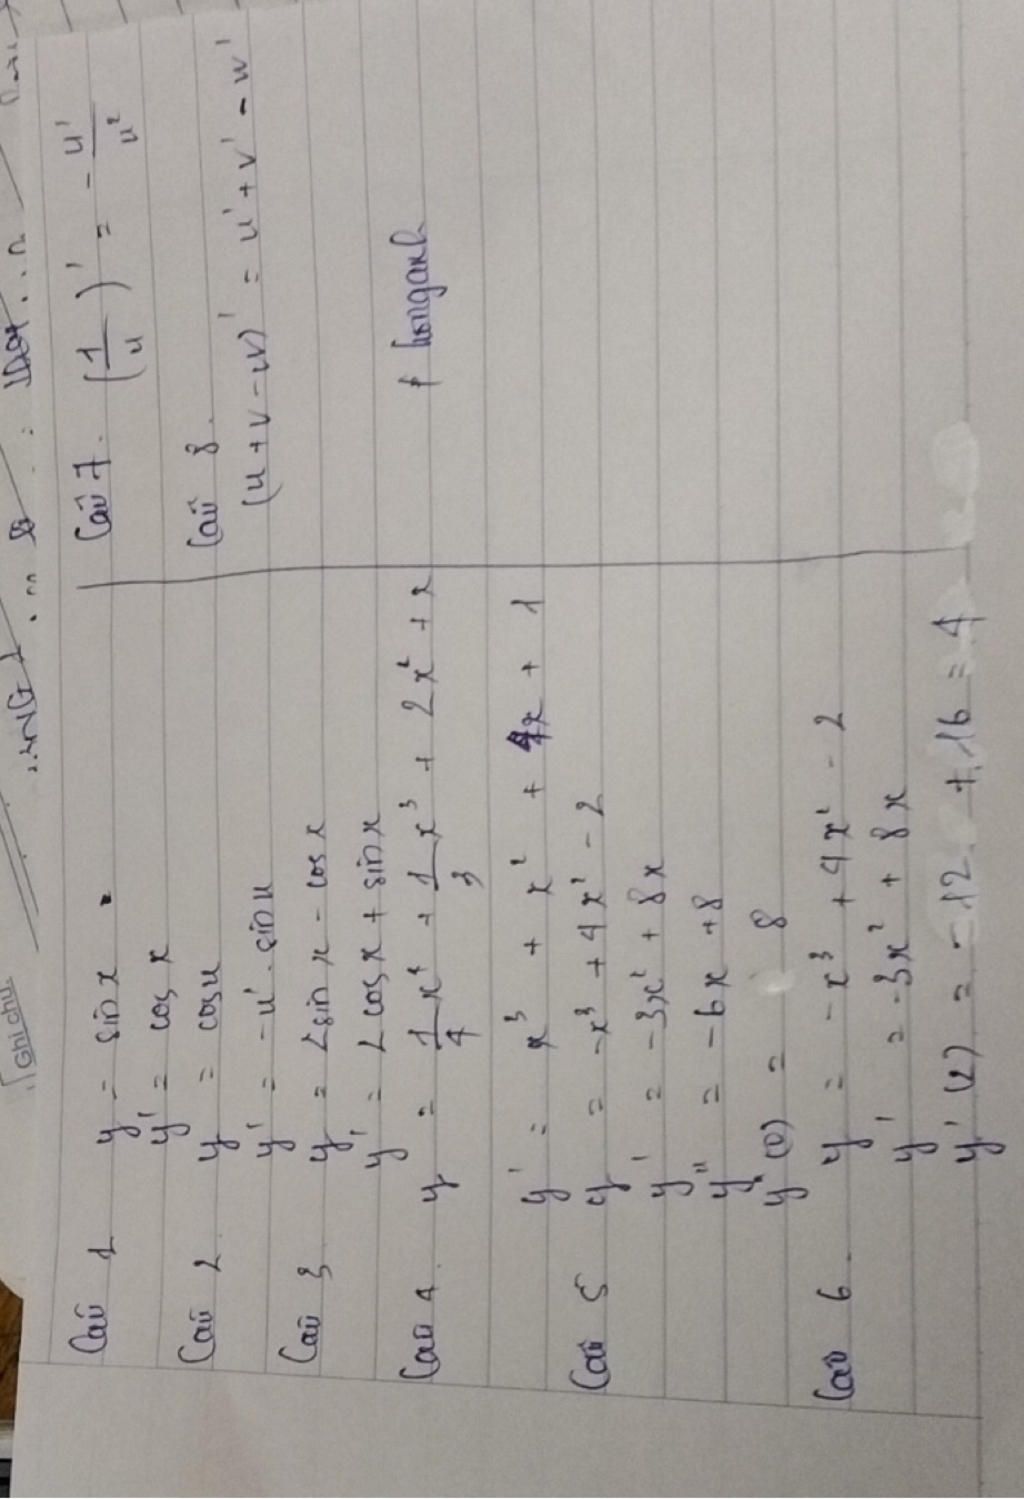 Ghi chú:
Câu 1 y = sin x
y' = cos x
Câu 2 y = cos u
y' = -u' . sin u
Câu 3 y = 2 sin x - cos x
y' = 2 cos x + sin x
Câu 4. y = 1/4 x⁴ + 1/3 x³ + 2x² + x
y' = x³ + x² + 4x + 1
Câu 5 y = -x³ + 4x² - 2
y' = -3x² + 8x
y'' = -6x + 8
y''(0) = 8
Câu 6. y = -x³ + 4x² - 2
y' = -3x² + 8x
y'(2) = -12 + 16 = 4
Câu 7. (1/u)' = - u'/u²
Câu 8.
(u + v - w)' = u' + v' - w'